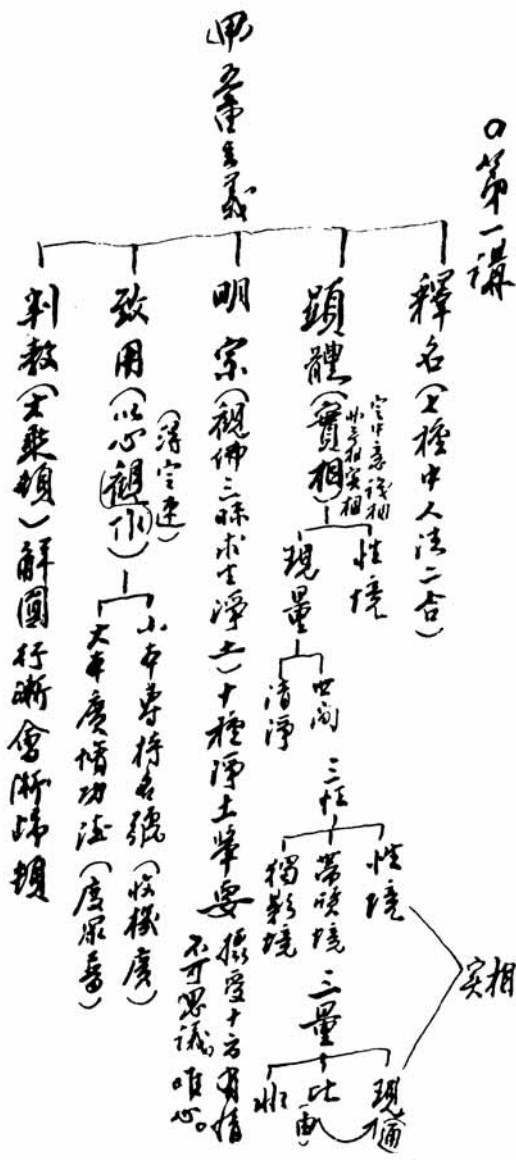 ○第一講
甲 五重玄義
釋名(七種中人法二合)
顯體(實相)
定中意識相
亦即相實相
性境
現量
世間
清淨
三性
性境
帶質境
獨影境
三量
現 通
比
非
实相
明宗(觀佛三昧求生淨土)十種淨土舉要 攝受十方有情
不可思議,唯心。
致用(以心觀作)
(得定速)
小本專持名號(收機廣)
大本廣脩功法(度眾普)
判教(大乘頓)解圓行漸會漸歸頓